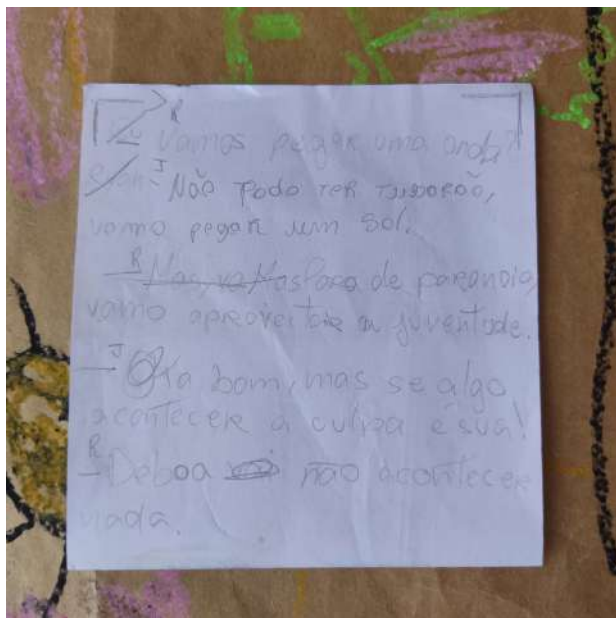 R Vamos pegar uma onda?
J Não Podo ter TUBARÃO,
vamo pegar um sol.
R Mas, para de paranoia,
vamo aproveitar a juventude.
— J Ta bom, mas se algo
acontecer a culpa é sua!
R
— Deboa não acontecer
nada.